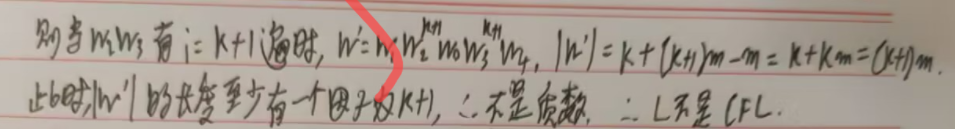 则当w₂w₃有i=k+1遍时, w'=w₁w₂ᵏ⁺¹w₀w₃ᵏ⁺¹w₄, |w'|=k+(k+1)m-m=k+km=(k+1)m.
此时,|w'|的长度至少有一个因子效k+1, ∴不是质数. ∴L不是CFL.